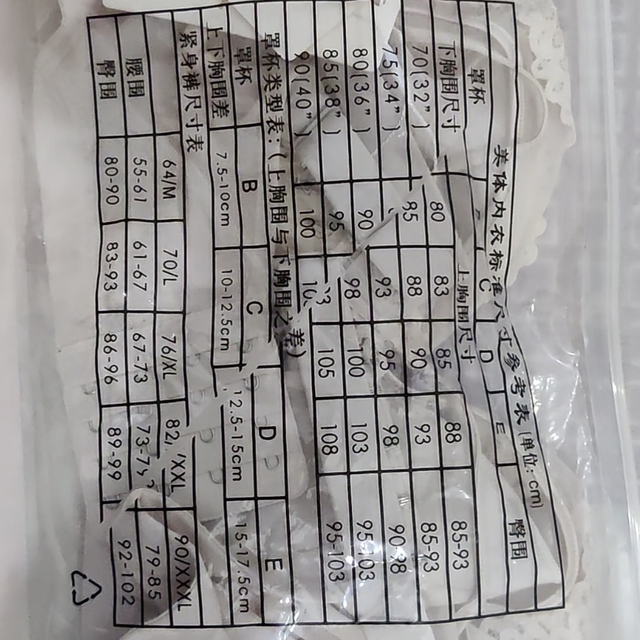 美体内衣标准尺寸参考表(单位:cm)
罩杯 B C D E 臀围
下胸围尺寸 上胸围尺寸
70(32") 80 83 85 88 85-93
75(34") 85 88 90 93 85-93
80(36") 90 93 95 98 90-98
85(38") 95 98 100 103 95-103
90(40") 100 103 105 108 95-103
罩杯类型表:(上胸围与下胸围之差)
罩杯 B C D E
上下胸围差 7.5-10cm 10-12.5cm 12.5-15cm 15-17.5cm
紧身裤尺寸表
64/M 70/L 76/XL 82/XXL 90/XXXL
腰围 55-61 61-67 67-73 73-79 79-85
臀围 80-90 83-93 86-96 89-99 92-102